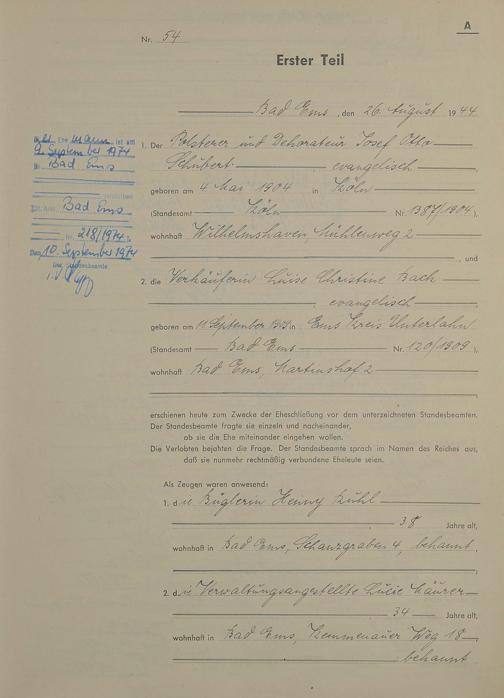 A
Nr. 54
Erster Teil
Bad Ems, den 26. August 1944
1. Der Polsterer und Dekorateur Josef Otto
Schubert evangelisch
geboren am 4. Mai 1904 in Köln
(Standesamt Köln Nr. 1387/1904),
wohnhaft Wilhelmshaven, Mühlenweg 2
, und
2. die Verkäuferin Luise Christine Bach
, evangelisch
geboren am 11. September 1909 in Ems Kreis Unterlahn
(Standesamt Bad Ems Nr. 120/1909),
wohnhaft Bad Ems, Martinshof 2
erschienen heute zum Zwecke der Eheschließung vor dem unterzeichneten Standesbeamten.
Der Standesbeamte fragte sie einzeln und nacheinander,
ob sie die Ehe miteinander eingehen wollen.
Die Verlobten bejahten die Frage. Der Standesbeamte sprach im Namen des Reiches aus,
daß sie nunmehr rechtmäßig verbundene Eheleute seien.
Als Zeugen waren anwesend:
1. die Büglerin Henny Kühl
38 Jahre alt,
wohnhaft in Bad Ems, Schanzgraben 4, bekannt
2. die Verwaltungsangestellte Lucie
34 Jahre alt,
wohnhaft in Bad Ems, Kemmenauer Weg 18
bekannt
Ehemann ist am
9. September 1974
in Bad Ems
verstorben
Bad Ems
Nr. 218/1974
Den 10. September 1974
Der Standesbeamte